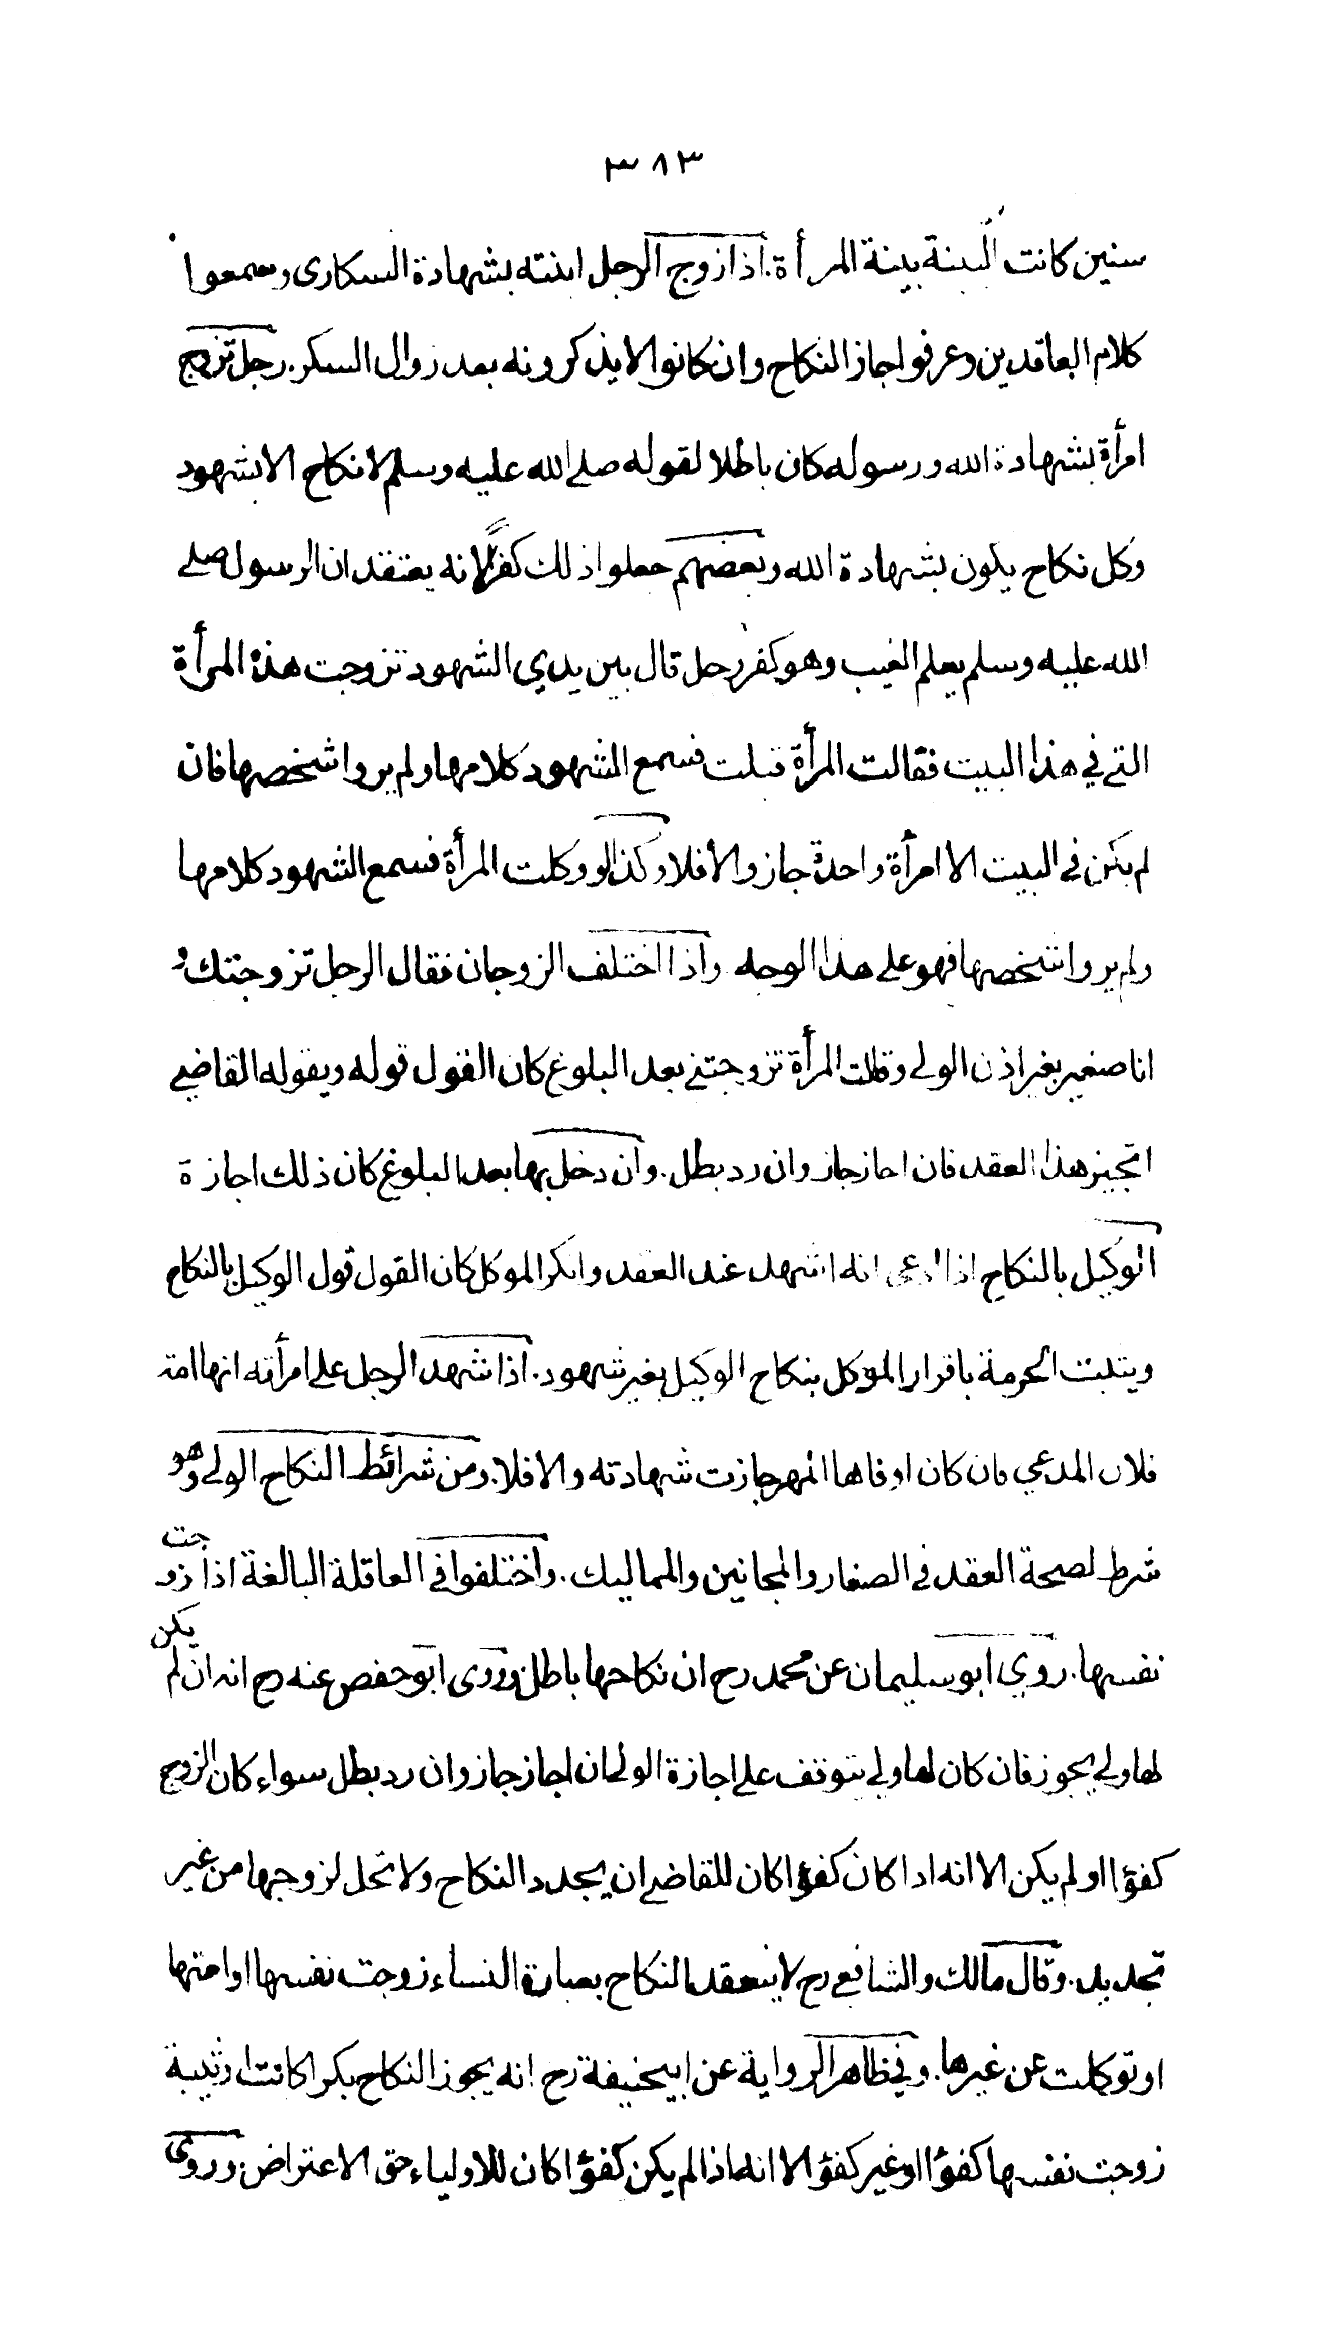 ٣٨٣
سنين كانت البينة بينة المرأة. اذا زوج الرجل ابنته بشهادة السكارى وسمعوا
كلام العاقدين وعرفوا جاز النكاح وان كانوا لا يذكرونه بعد زوال السكر. رجل تزوج
امرأة بشهادة الله ورسوله كان باطلا لقوله صلى الله عليه وسلم لا نكاح الا بشهود
وكل نكاح يكون بشهادة الله وبعضهم جعلوا ذلك كفرًا لانه يعتقد ان الرسول صلى
الله عليه وسلم يعلم الغيب وهو كفر رجل قال بين يدي الشهود تزوجت هذه المرأة
التي في هذا البيت فقالت المرأة قبلت فسمع الشهود كلامها ولم يروا شخصها فان
لم يكن في البيت الا امرأة واحدة جاز والا فلا وكذا لو وكلت المرأة فسمع الشهود كلامها
ولم يروا شخصها فهو على هذا الوجه واذا اختلف الزوجان فقال الرجل تزوجتك و
انا صغير بغير اذن الولي وقالت المرأة تزوجتني بعد البلوغ كان القول قوله ويقوله القاضي
اتجيز هذا العقد فان اجاز جاز وان رد بطل. وان دخل بها بعد البلوغ كان ذلك اجازة
الوكيل بالنكاح اذا ادعى انه اشهد عند العقد وانكر الموكل كان القول قول الوكيل بالنكاح
ويثبت الحرمة باقرار الموكل بنكاح الوكيل بغير شهود. اذا شهد الرجل على امرأته انها امة
فلان المدعي فان كان اوفاها المهر جازت شهادته والا فلا. ومن شرائط النكاح الولي وهو
شرط لصحة العقد في الصغار والمجانين والمماليك. واختلفوا في العاقلة البالغة اذا زوجت
نفسها. روي ابو سليمان عن محمد رح ان نكاحها باطل وروى ابو حفص عنه رح انه ان لم يكن
لها ولي يجوز فان كان لها ولي يتوقف على اجازة الولي ان اجاز جاز وان رد بطل سواء كان الزوج
كفؤا او لم يكن الا انه اذا كان كفؤا كان للقاضي ان يجدد النكاح ولا تحل لزوجها من غير
تجديد. وقال مالك والشافعي رح لا ينعقد النكاح بعبارة النساء زوجت نفسها او امتها
او توكلت عن غيرها. وفي ظاهر الرواية عن ابيحنيفة رح انه يجوز النكاح بكرا كانت او ثيبة
زوجت نفسها كفؤا او غير كفؤ الا انه اذا لم يكن كفؤا كان للاولياء حق الاعتراض. وروى